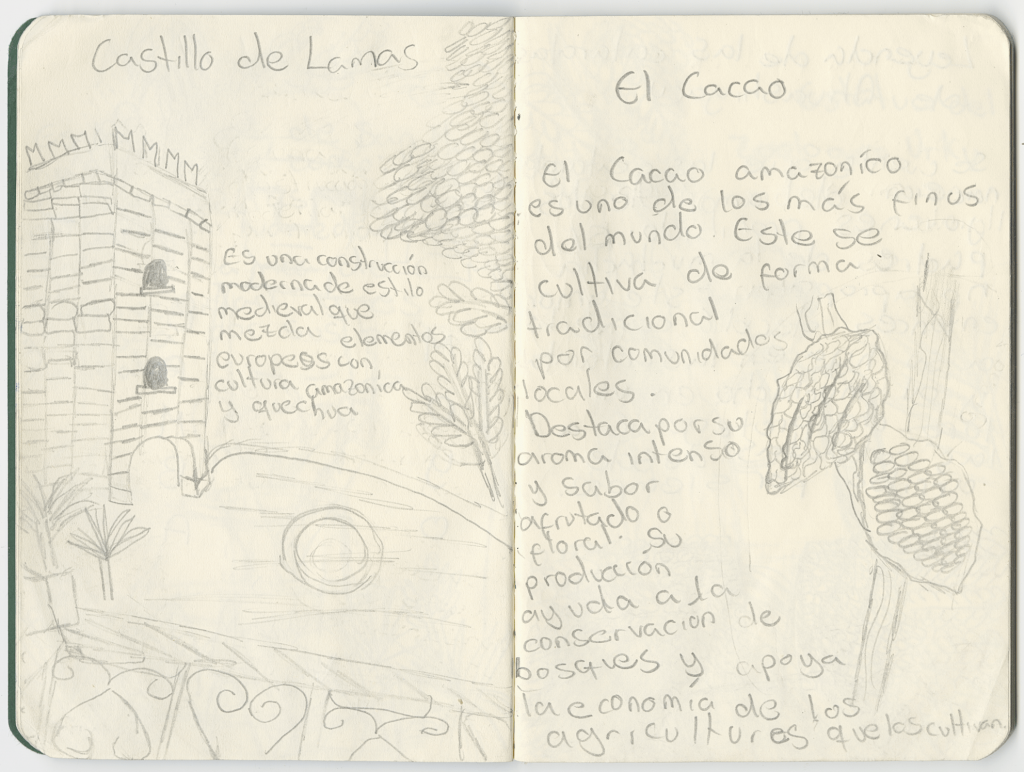 Castillo de Lamas
Es una construcción
moderna de estilo
medieval que
mezcla elementos
europeos con
cultura amazonica
y quechua
El Cacao
El Cacao amazonico
es uno de los más finos
del mundo. Este se
cultiva de forma
tradicional
por comunidades
locales.
Destaca por su
aroma intenso
y sabor
afrutado o
floral. Su
producción
ayuda a la
conservación de
bosques y apoya
la economía de los
agricultures que los cultivan.